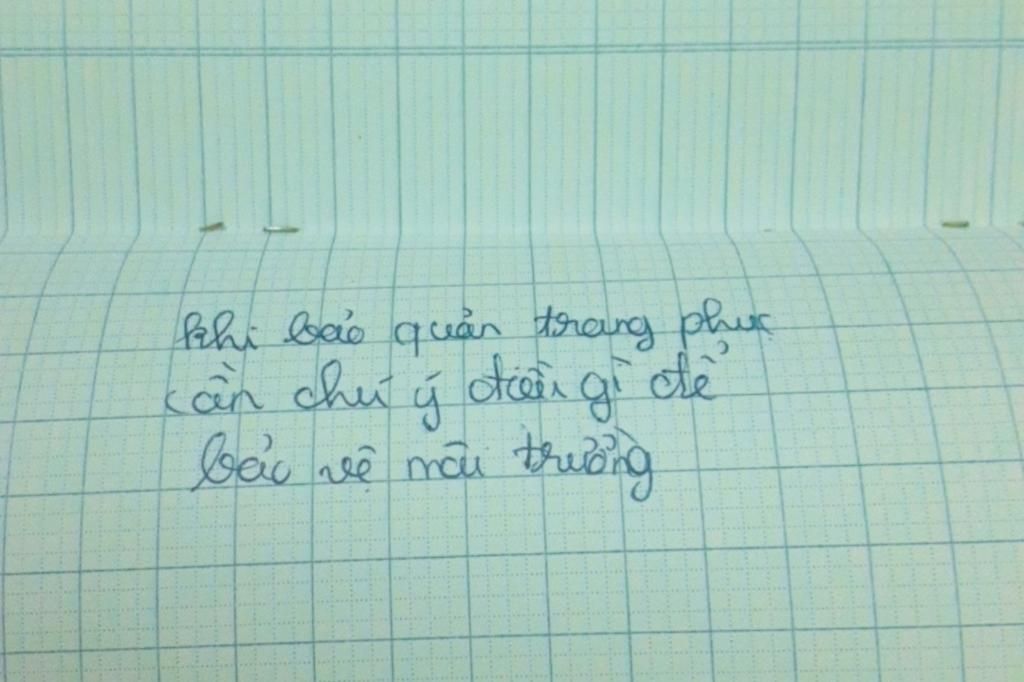 khi bảo quản trang phục
cần chú ý điều gì để
bảo vệ môi trường